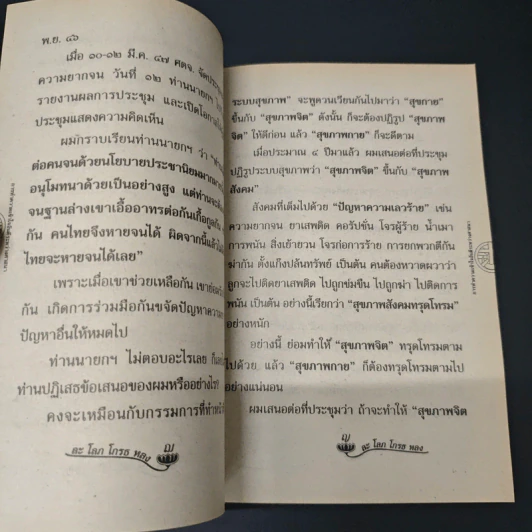 พ.ย. ๔๖
เมื่อ ๑๐-๑๒ มี.ค. ๔๗ ศตจ. จัดประชุม
ความยากจน วันที่ ๑๒ ท่านนายกฯ
รายงานผลการประชุม และเปิดโอกาส
ประชุมแสดงความคิดเห็น
ผมกราบเรียนท่านนายกฯ ว่า
ต่อคนจนด้วยนโยบายประชานิยมมากมาย
อนุโมทนาด้วยเป็นอย่างสูง แต่ท่านจะต้อง
จนฐานล่างเขาเอื้ออาทรต่อกันเกื้อกูลกัน
กัน คนไทยจึงหายจนได้ ผิดจากนี้แล้ว
ไทยจะหายจนได้เลย”
เพราะเมื่อเขาช่วยเหลือกัน เขาย่อม
กัน เกิดการร่วมมือกันขจัดปัญหาความ
ปัญหาอื่นให้หมดไป
ท่านนายกฯ ไม่ตอบอะไรเลย
ท่านปฏิเสธข้อเสนอของผมหรืออย่างไร
คงจะเหมือนกับกรรมการที่ทำหน้า
ละ โลภ โกรธ หลง
ระบบสุขภาพ” จะพูดวนเวียนกันไปมาว่า “สุขกาย”
ขึ้นกับ “สุขภาพจิต” ดังนั้น ก็จะต้องปฏิรูป “สุขภาพ
จิต” ให้ดีก่อน แล้ว “สุขภาพกาย” ก็จะดีตาม
เมื่อประมาณ ๔ ปีมาแล้ว ผมเสนอต่อที่ประชุม
ปฏิรูประบบสุขภาพว่า “สุขภาพจิต” ขึ้นกับ “สุขภาพ
สังคม”
สังคมที่เต็มไปด้วย “ปัญหาความเลวร้าย” เช่น
ความยากจน ยาเสพติด คอรัปชั่น โจรผู้ร้าย น้ำเมา
การพนัน สิ่งเย้ายวน โจรก่อการร้าย การยกพวกตีกัน
ฆ่ากัน ตั้งแก๊งปล้นทรัพย์ เป็นต้น คนต้องหวาดผวาว่า
ลูกจะไปติดยาเสพติด ไปถูกข่มขืน ไปถูกฆ่า ไปติดการ
พนัน เป็นต้น อย่างนี้เรียกว่า “สุขภาพสังคมทรุดโทรม”
อย่างหนัก
อย่างนี้ ย่อมทำให้ “สุขภาพจิต” ทรุดโทรมตาม
ไปด้วย แล้ว “สุขภาพกาย” ก็ต้องทรุดโทรมตามไป
อย่างแน่นอน
ผมเสนอต่อที่ประชุมว่า ถ้าจะทำให้ “สุขภาพจิต
ละ โลภ โกรธ หลง